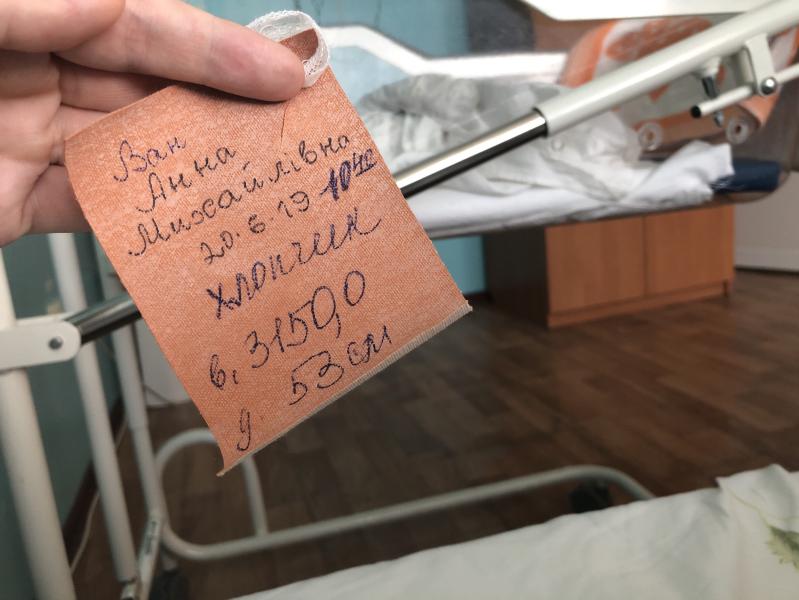 Ван
Анна
Михайлівна
20.6.19 10 40
хлопчик
в, 3150,0
у. 53 см